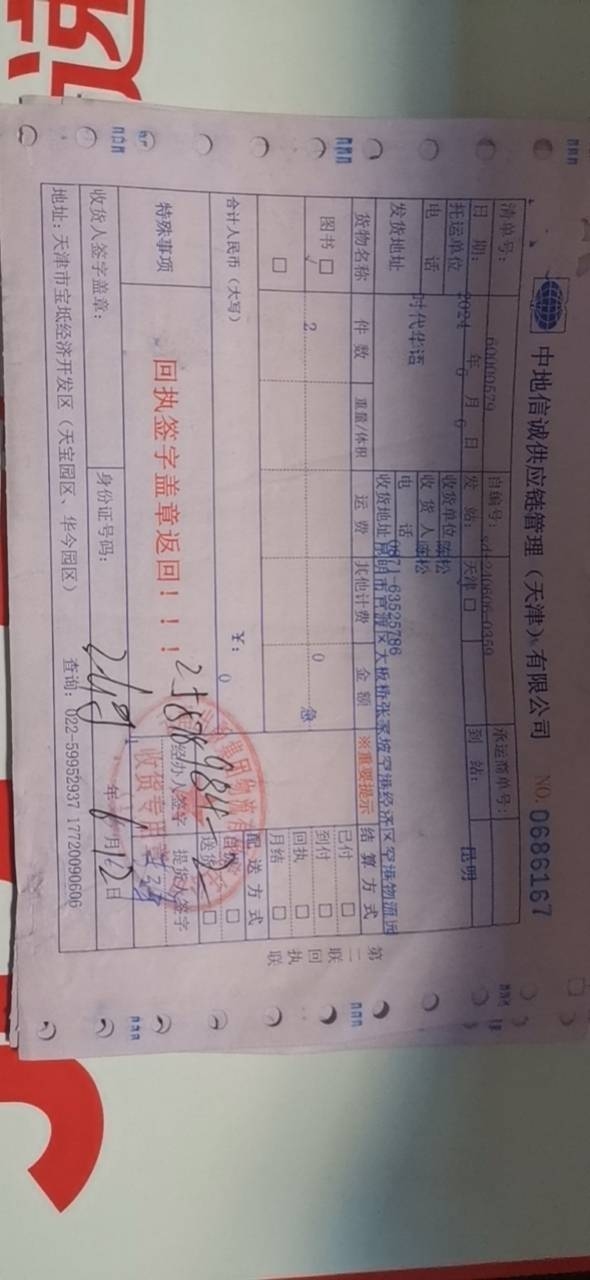 中地信诚供应链管理（天津）有限公司 NO. 0686167
清单号: 60000579 自编号: sdx240606-0359 承运商单号:
日 期: 2024 年 6 月 6 日 发 站: 天津 到 站: 昆明
托运单位 收货单位 陈松
电 话 收 货 人 陈松
时代华语 电 话 0871-63525786
发货地址 收货地址 昆明市官渡区大板桥张家坡空港经济区空港物流园
货物名称 件 数 重量/体积 运 费 其他计费 金 额 ※重要提示 结 算 方 式
图书 2 0 急
已付
到付
回执
月结
合计人民币（大写） ￥: 0 配 送 方 式
自提
送货
特殊事项 回执签字盖章返回！！！ 经办人签字 提货人签字
收货专用章
收货人签字盖章: 身份证号码: 年 6 月 12 日
地址: 天津市宝坻经济开发区（天宝园区、华今园区） 查询: 022-59952937 17720090606
第二联 回执联